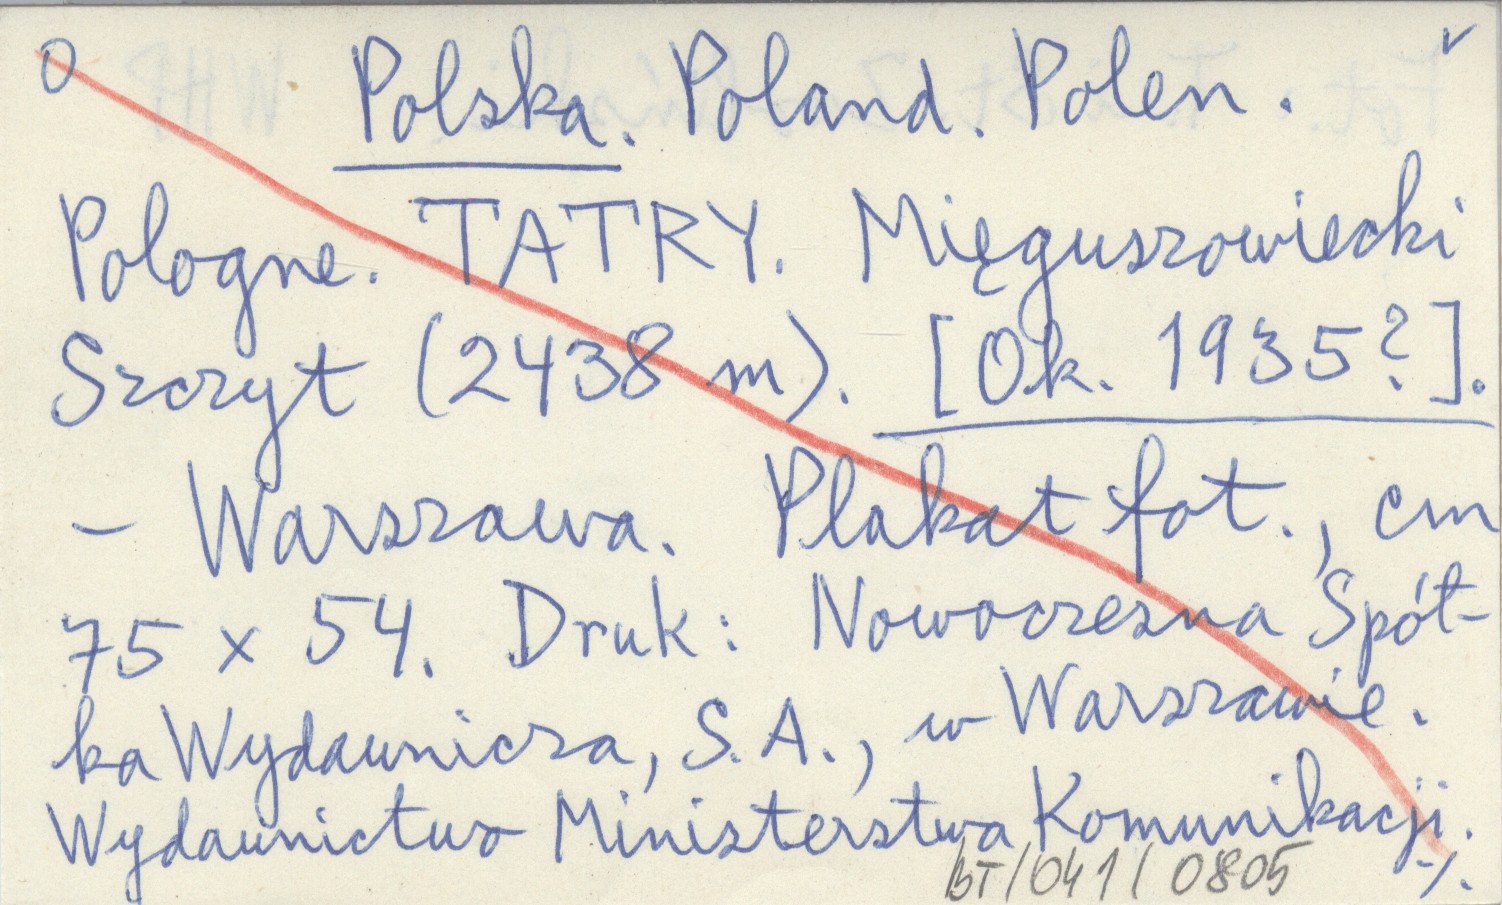 O Polska. Poland. Polen.
Pologne. TATRY. Mięguszowiecki
Szczyt (2438 m). [Ok. 1935?].
- Warszawa. Plakat fot., cm
75 x 54. Druk: Nowoczesna Spół-
ka Wydawnicza, S.A., w Warszawie.
Wydawnictwo Ministerstwa Komunikacji.
BT/041/0805 -/.